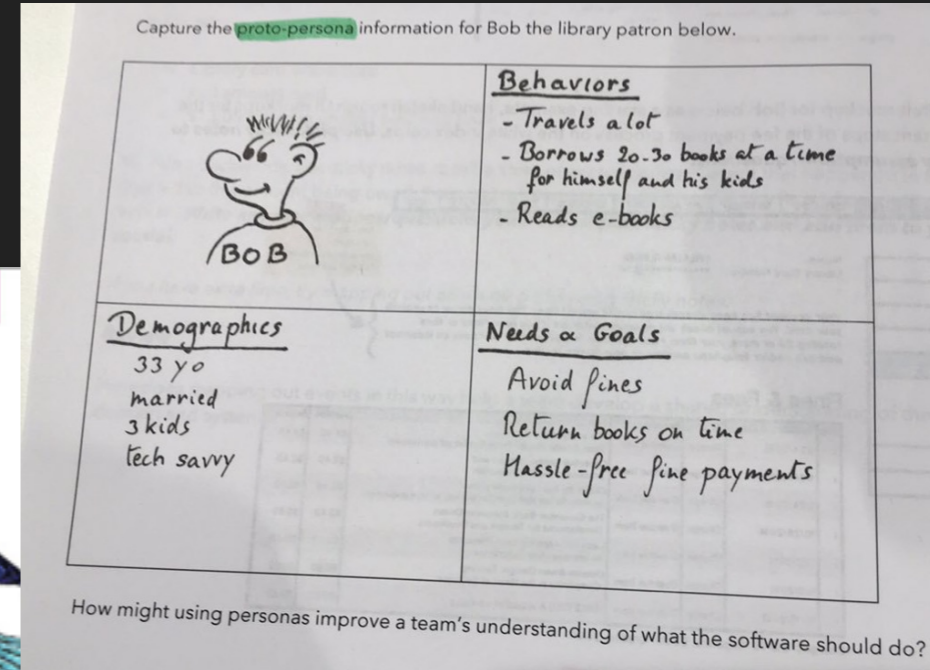 Capture the proto-persona information for Bob the library patron below.
BOB
Behaviors
- Travels a lot
- Borrows 20-30 books at a time
for himself and his kids
- Reads e-books
Demographics
33 yo
married
3 kids
tech savvy
Needs & Goals
Avoid fines
Return books on time
Hassle-free fine payments
How might using personas improve a team's understanding of what the software should do?